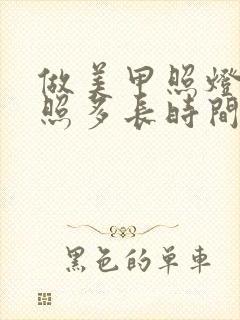 做美甲照燈
照多長時間
黑色的單車